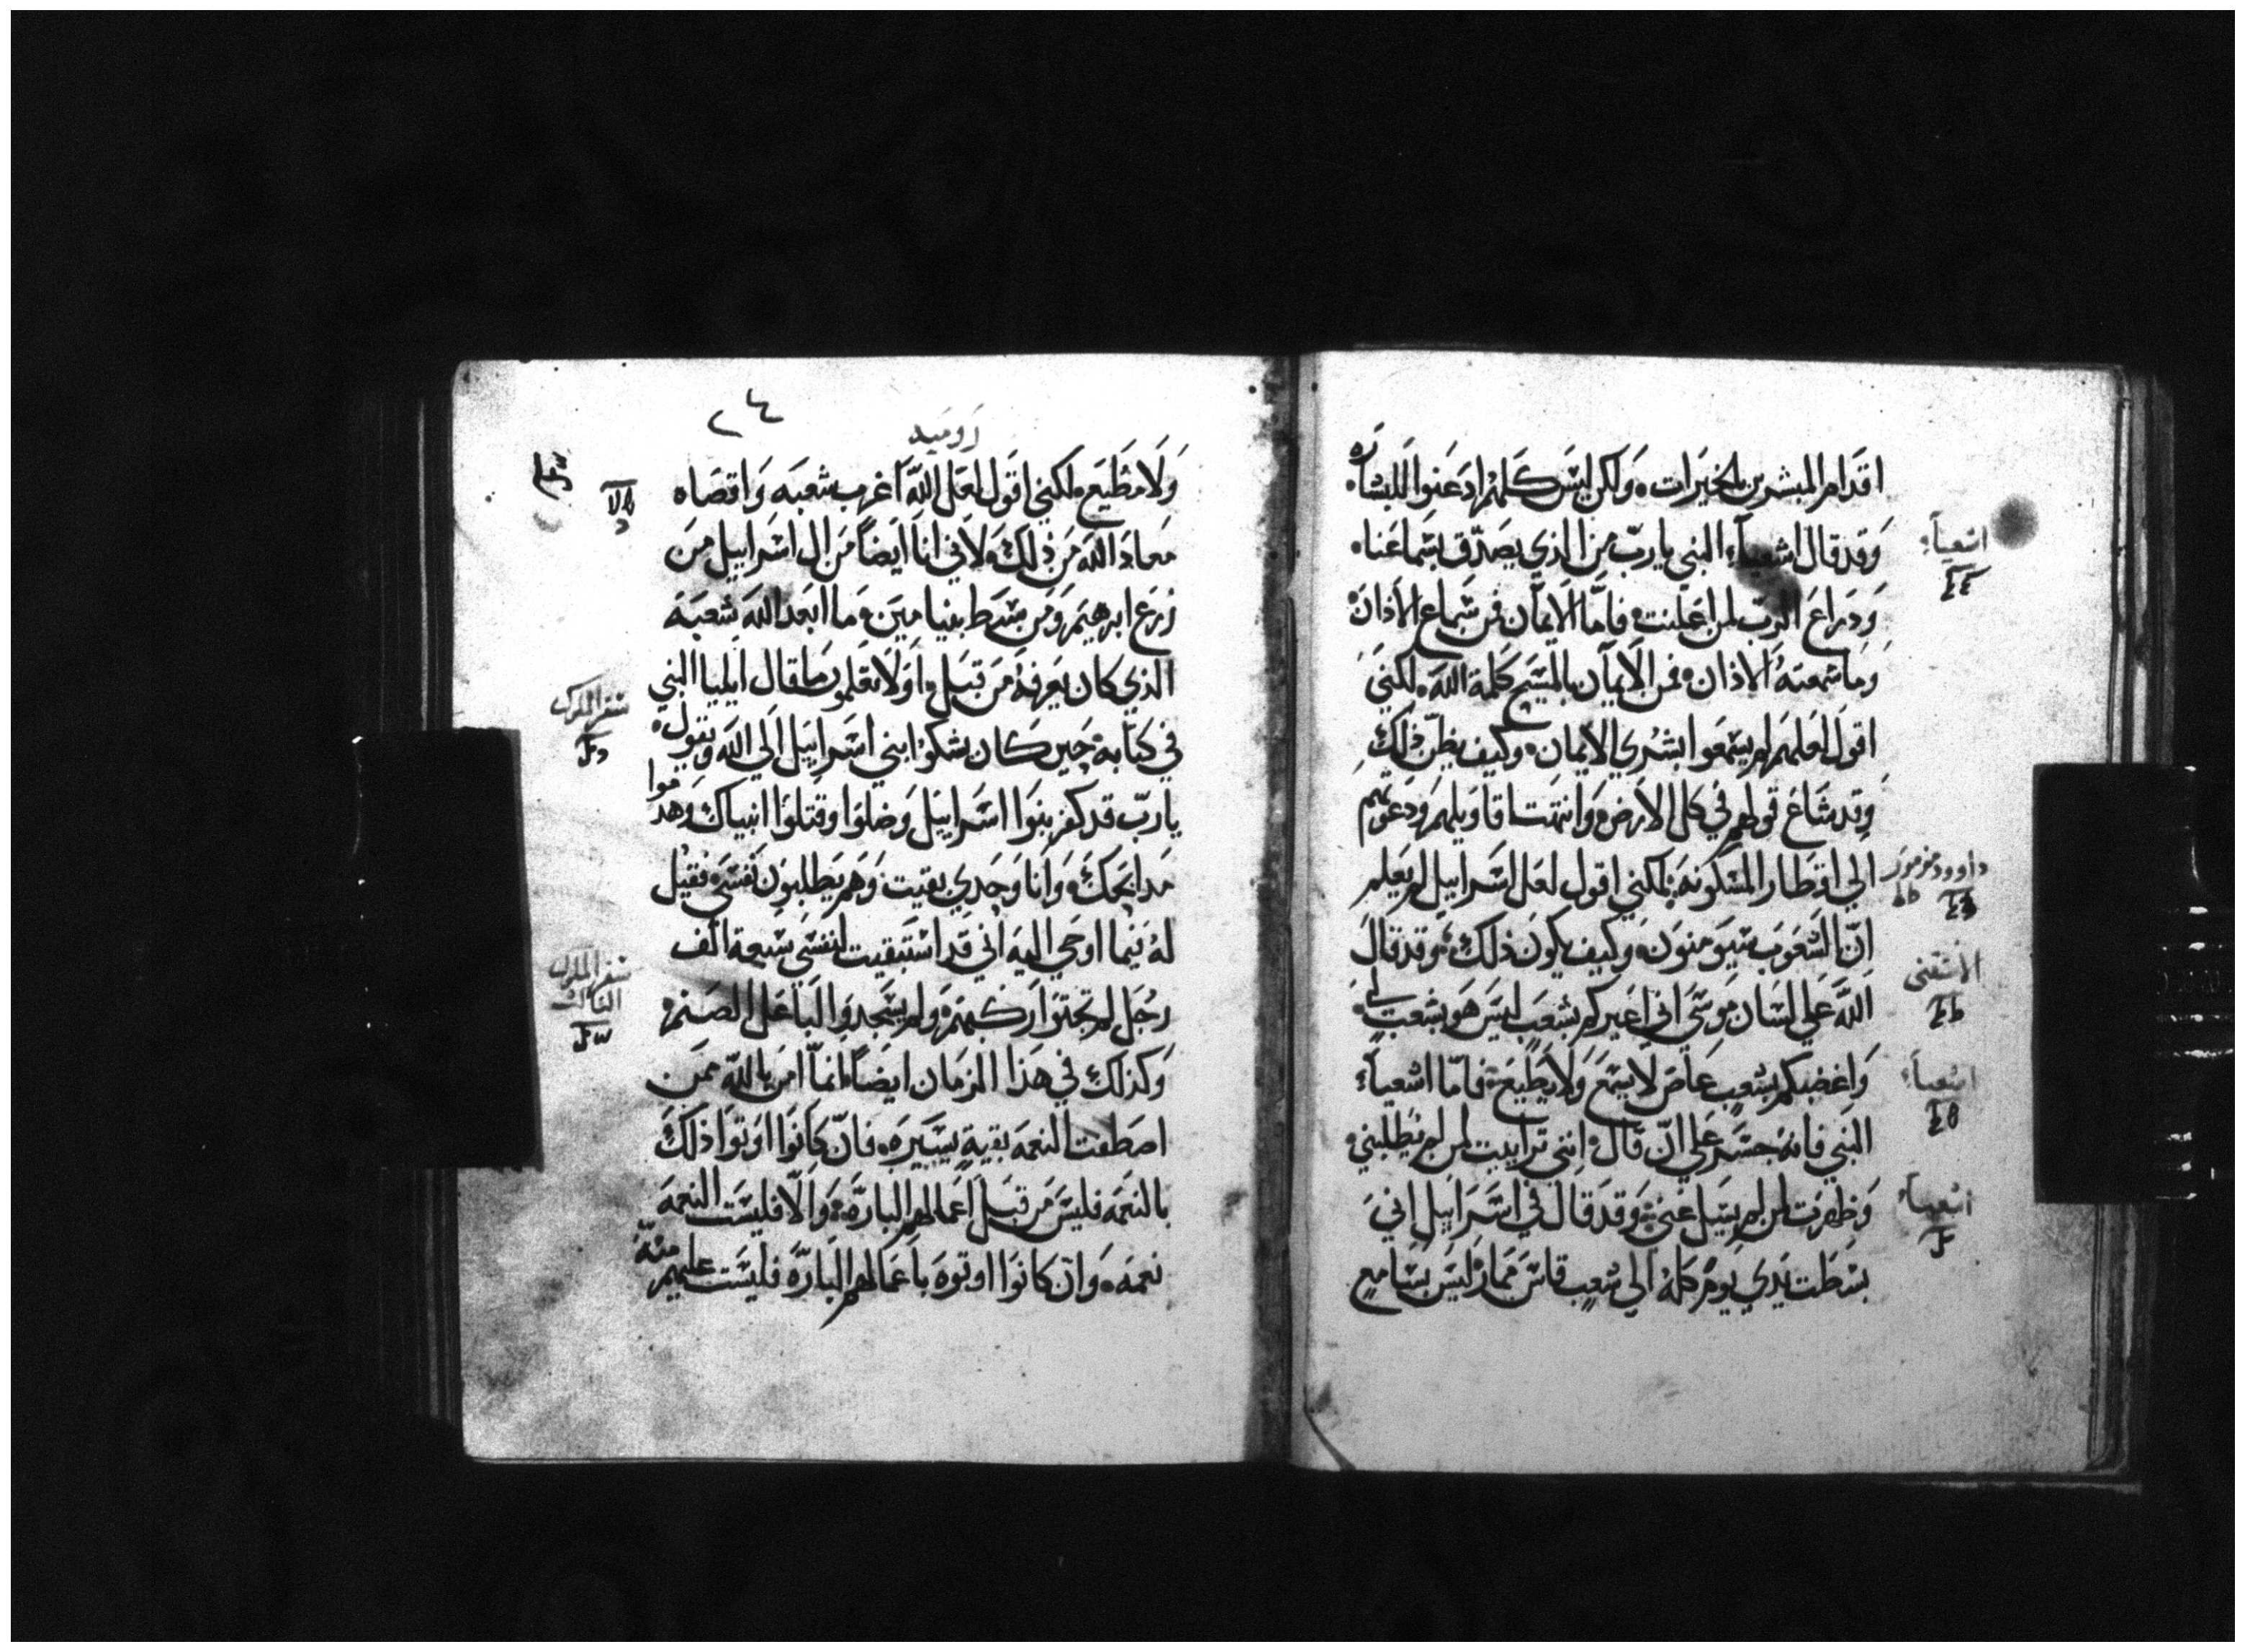 اقدام المبشرين بالخيرات، ولكن ليس كلهم اذعنوا للبشاره
وقد قال اشعياء النبي يارب من الذي يصدق بسماعنا
وذراع الرب لمن اعلنت فاما الايمان فمن سماع الاذان
وما سمعته الاذان فمن الايمان بالمسيح كلمة الله لكني
اقول لعلهم لم يسمعوا بشري الايمان وكيف يظن ذلك
وقد شاع قولهم في كل الارض وانتهت اقاويلهم ودعوتهم
الي اقطار المسكونه لكني اقول لعل اسراييل لم يعلم
ان الشعوب سيومنون وكيف يكون ذلك وقد قال
الله علي لسان موسي اني اغيركم بشعب ليس هو بشعب لي
واغضبكم بشعب عاص لا يسمع ولا يطيع فاما اشعياء
النبي فانه جسر علي ان قال انني تراييت لمن لم يطلبني
وظهرت لمن لم يسيل عني وقد قال في اسراييل اني
بسطت يدي يومي كله الي شعب قاس ممار ليس بسامع
اشعياء
داوود مزمور
الاستثنى
اشعياء
اشعياء
٢٤
روميه
ولا مطيع لكني اقول لعل الله اغرب شعبه واقصاه
معاذ الله من ذلك لاني انا ايضا من ال اسراييل من
زرع ابرهيم ومن سبط بنيامين وما ابعد الله شعبه
الذي كان يعرفه من قبل اولا تعلمون ما قال ايليا النبي
في كتابه حين كان يشكوا بني اسراييل الي الله ويقول
يارب قد كفر بنوا اسراييل وضلوا وقتلوا انبياك وهدموا
مدابحك وانا وحدي بقيت وهم يطلبون نفسي فقيل
له فيما اوحي اليه اني قد استبقيت لنفسي سبعة الف
رجل لم يجثوا ركبهم ولم يسجدوا لباعل الصنم
وكذلك في هذا الزمان ايضا انما امن بالله ممن
اصطفت النعمه بقية يسيره، فان كانوا اوتوا ذلك
بالنعمه فليس من قبل اعمالهم الباره والا فليست النعمه
نعمه، وان كانوا اوتوه باعمالهم الباره فليست عليهم منه
سفر الملوك
سفر الملوك
الثالث